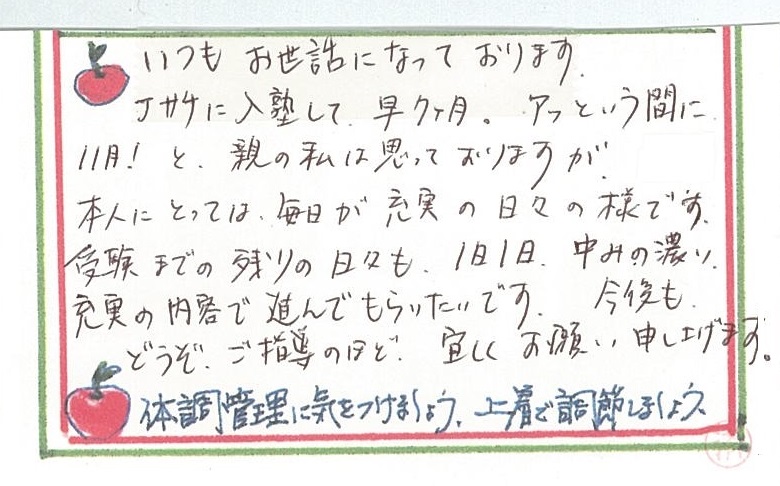 いつも お世話になって おります.
Jサケに入塾して. 早7ヶ月。 アッという間に
11月! と. 親の私は思って おりますが.
本人にとっては、毎日が 充実 の 日々の 様です.
受験 までの 残りの 日々も. 1日1日. 中みの濃い.
充実の 内容で 進んで もらいたいです. 今後も.
どうぞ. ご指導のほど. 宜しく お願い 申し上げます。
体調管理に気をつけましょう. 上着で調節しましょう.